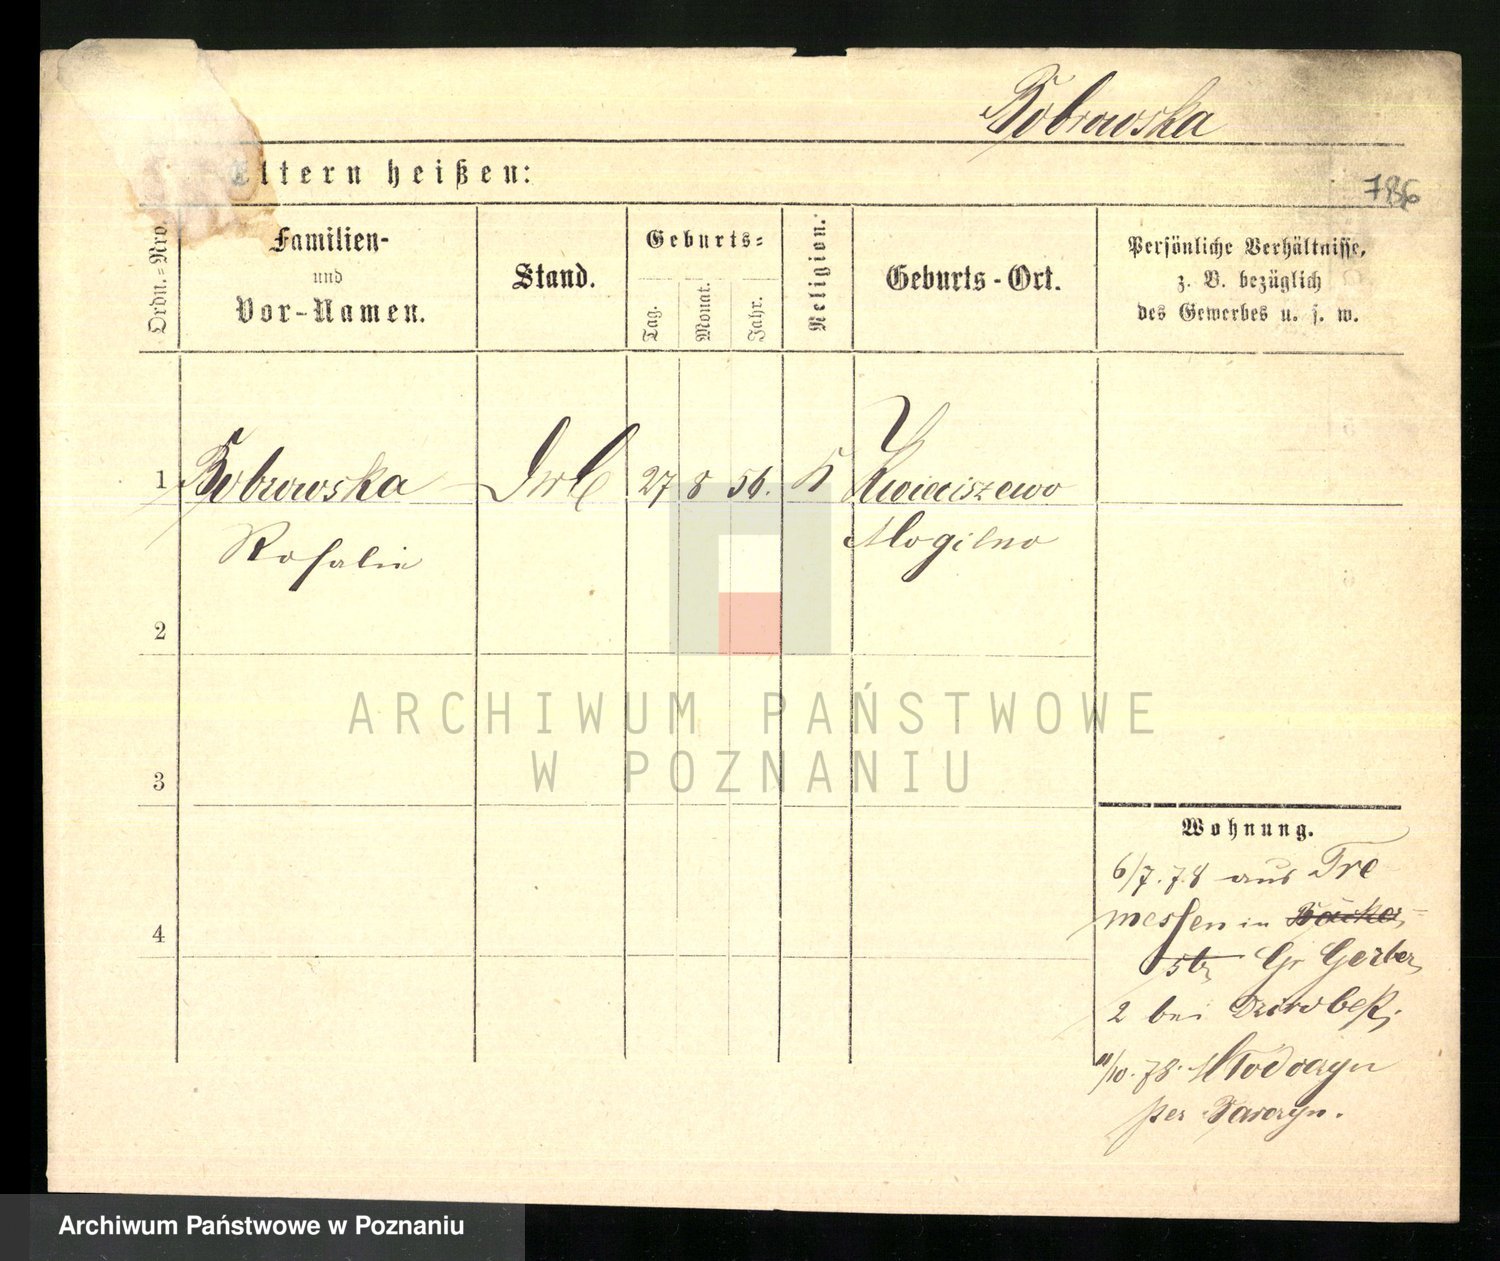 Bobrowska
Eltern heißen:
786
Ordn.-Nro.
Familien-
und
Vor-Namen.
Stand.
Geburts-
Tag.
Monat.
Jahr.
Religion.
Geburts-Ort.
Persönliche Verhältnisse,
z. B. bezüglich
des Gewerbes u. s. w.
1 Bobrowska 27 8 56. K Kwieciszewo
Rosalie Mogilno
2
3
4
ARCHIWUM PAŃSTWOWE
W POZNANIU
Wohnung.
6/7. 78 aus Tre
messen in Bäcker
str Gr Gerber
2 bei
11/10. 78.
per
Archiwum Państwowe w Poznaniu